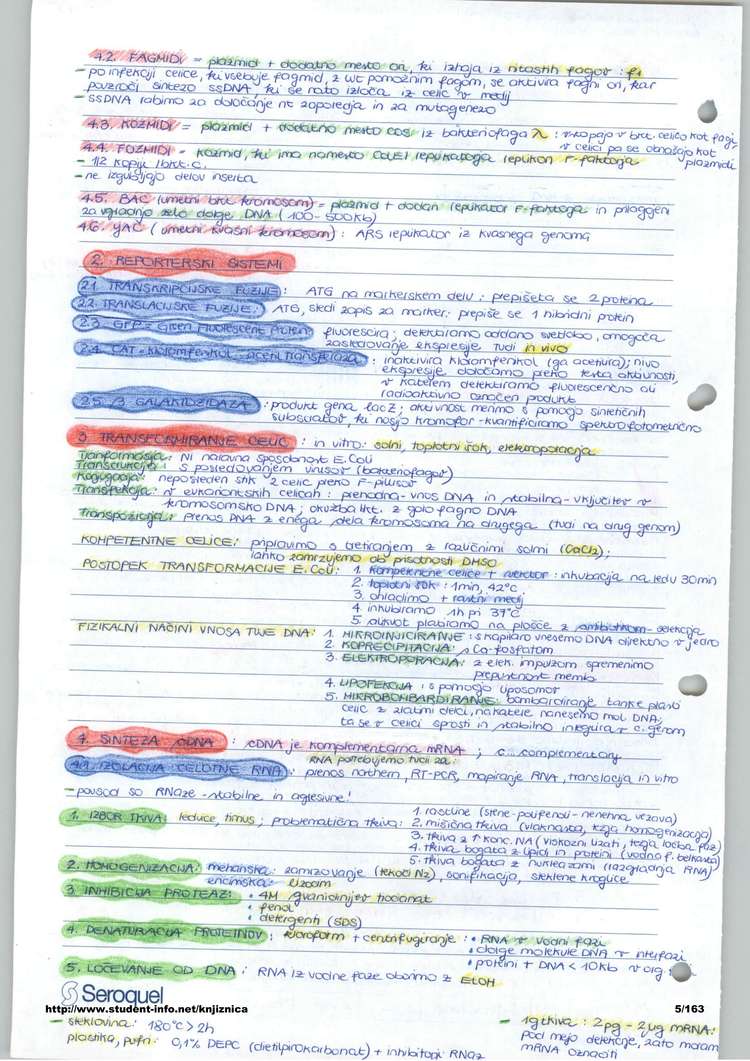 4.2. FAGMIDI = plazmid + dodatno mesto ori, ki izhaja iz nitastih fagov : f1
- po infekciji celice, ki vsebuje fagmid, z wt pomožnim fagom, se aktivira fagni ori, kar
povzroči sintezo ssDNA, ki se nato izloča iz celic v medij
- ssDNA rabimo za določanje nt zaporedja in za mutagenezo
4.3. KOZMIDI = plazmid + dodatno mesto cos iz bakteriofaga λ : vstopajo v bkt. celico kot fagi,
v celici pa se obnašajo kot
plazmidi
4.4. FOZMIDI - kozmid, ki ima namesto ColE1 replikatorja replikon F-faktorja
- 1/2 kopiji /bkt. c.
- ne izgubljajo delov inserta
4.5. BAC (umetni bkt kromosom) = plazmid + dodan replikator F-faktorja in prilagojeni
za vgradnjo zelo dolge DNA (100-500kb)
4.6. YAC (umetni kvasni kromosom) : ARS replikator iz kvasnega genoma
2. REPORTERSKI SISTEMI
2.1. TRANSKRIPCIJSKE FUZIJE: ATG na markerskem delu : prepišeta se 2 proteina
2.2. TRANSLACIJSKE FUZIJE: ATG, sledi zapis za marker: prepiše se 1 hibridni protein
2.3. GFP = Green Fluorescent Protein fluorescira; detektiramo oddano svetlobo, omogoča
zasledovanje ekspresije tudi in vivo
2.4. CAT = kloramfenikol - acetil transferaza : inaktivira kloramfenikol (ga acetilira); nivo
ekspresije določamo preko testa aktivnosti,
v katerem detektiramo fluorescenčno ali
radioaktivno označen produkt
2.5. β GALAKTOZIDAZA : produkt gena lacZ; aktivnost merimo s pomočjo sintetičnih
substratov, ki nosijo kromofor - kvantificiramo spektrofotometrično
3. TRANSFORMIRANJE CELIC : in vitro: solni, toplotni šok, elektroporacija
Transformacija: Ni naravna sposobnost E.Coli
Transdukcija: s posredovanjem virusov (bakteriofagov)
Konjugacija: neposreden stik 2 celic preko F-pilusov
Transfekcija: v evkariontskih celicah : prehodna - vnos DNA in stabilna - vključitev v
kromosomsko DNA; okužba bkt. z golo fagno DNA
Transpozicija: prenos DNA z enega dela kromosoma na drugega (tudi na drug genom)
KOMPETENTNE CELICE: pripravimo s tretiranjem z različnimi solmi (CaCl2);
lahko zamrzujemo ob prisotnosti DMSO
POSTOPEK TRANSFORMACIJE E. Coli: 1. kompetentne celice + vektor : inkubacija na ledu 30min
2. toplotni šok : 1min, 42°C
3. ohladimo + rastni medij
4. inkubiramo 1h pri 37°C
5. alikvot plastiramo na plošče z antibiotikom - selekcija
FIZIKALNI NAČINI VNOSA TUJE DNA: 1. MIKROINJICIRANJE : s kapilaro vnesemo DNA direktno v jedro
2. KOPRECIPITACIJA: s Ca-fosfatom
3. ELEKTROPORACIJA: z elek. impulzom spremenimo
prepustnost memb.
4. LIPOFEKCIJA : s pomočjo liposomov
5. MIKROBOMBARDIRANJE: bombardiranje tanke plasti
celic z zlatimi delci, na katere nanesemo mol. DNA;
ta se v celici sprosti in stabilno integrira v c. genom
4. SINTEZA cDNA : cDNA je komplementarna mRNA ; c...complementary
4.1. IZOLACIJA CELOTNE RNA: RNA potrebujemo tudi za:
prenos northern, RT-PCR, mapiranje RNA, translacija in vitro
- povsod so RNaze - stabilne in agresivne!
1. IZBOR TKIVA: ledvice, timus ; problematična tkiva: 1. rastline (stene - polifenoli - nenehna vezava)
2. mišična tkiva (vlaknasta, težja homogenizacija)
3. tkiva z ↑ konc. NA (viskozni lizati, težja ločba faz)
4. tkiva bogata z lipidi in proteini (vodna f. belkasta)
5. tkiva bogata z nukleazami (razgradnja RNA)
2. HOMOGENIZACIJA: mehanska: zamrzovanje (tekoči N2), sonifikacija, steklene kroglice
encimska: lizocim
3. INHIBICIJA PROTEAZ: • 4M gvanidinijev tiocianat
• fenol
• detergenti (SDS)
4. DENATURACIJA PROTEINOV: kloroform + centrifugiranje: • RNA v vodni fazi
• dolge molekule DNA v interfazi
• proteini + DNA < 10kb v org.
5. LOČEVANJE OD DNA : RNA iz vodne faze oborimo z EtOH
Seroquel
http://www.student-info.net/knjiznica
5/163
- steklovina: 180°C > 2h
plastika, pufri: 0,1% DEPC (dietilpirokarbonat) + inhibitorji RNaz
- 1g tkiva : 2pg - 2μg mRNA:
pod mejo detekcije, zato moram
mRNA označiti